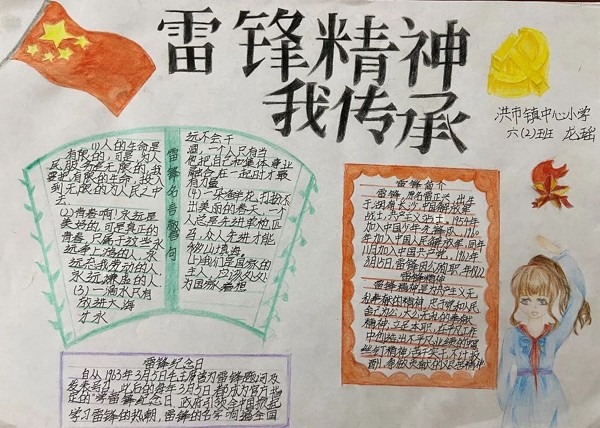 雷锋精神
我传承
洪市镇中心小学
六(2)班 龙瑶
雷锋名言警句
(1)人的生命是
有限的,可是,为人
民服务是无限的,我
要把有限的生命,投入
到无限的为人民之中
去
(2)青春啊!永远是
美好的,可是真正的
青春,只属于这些永
远力争上游的人,永
远忘我劳动的人,
永远谦虚的人
(3)一滴水只有
放进大海
才永
远不会干
涸,一个人只有当
他把自己和集体事业
融合在一起时才最
有力量
(4)一朵鲜花打扮不
出美丽的春天,一个
人先进单枪匹
马,众人先进才能
移山填海
我们是国家的
主人,应该处处
为国家着想
雷锋简介
雷锋,原名雷正兴,出生
于湖南长沙,中国解放军
战士,共产主义战士,1954年
加入中国少年先锋队,1960
年加入中国人民解放军,同年
11月加入中国共产党,1962年
8月15日,雷锋因公殉职,年仅22
雷锋精神
雷锋精神是为共产主义无
私奉献的精神,忠于党和人民
舍己为公,大公无私的奉献
精神,立足本职,在平凡工作
中创造出不平凡业绩的螺
丝钉精神,苦干实干不计较
雷锋纪念日
自从1963年3月5日毛主席为雷锋题词及
发表当日,此后的每年3月5日都成为官方指
定的"学雷锋纪念日,政府引领全中国掀起
学习雷锋的热潮,雷锋的名字响遍全国